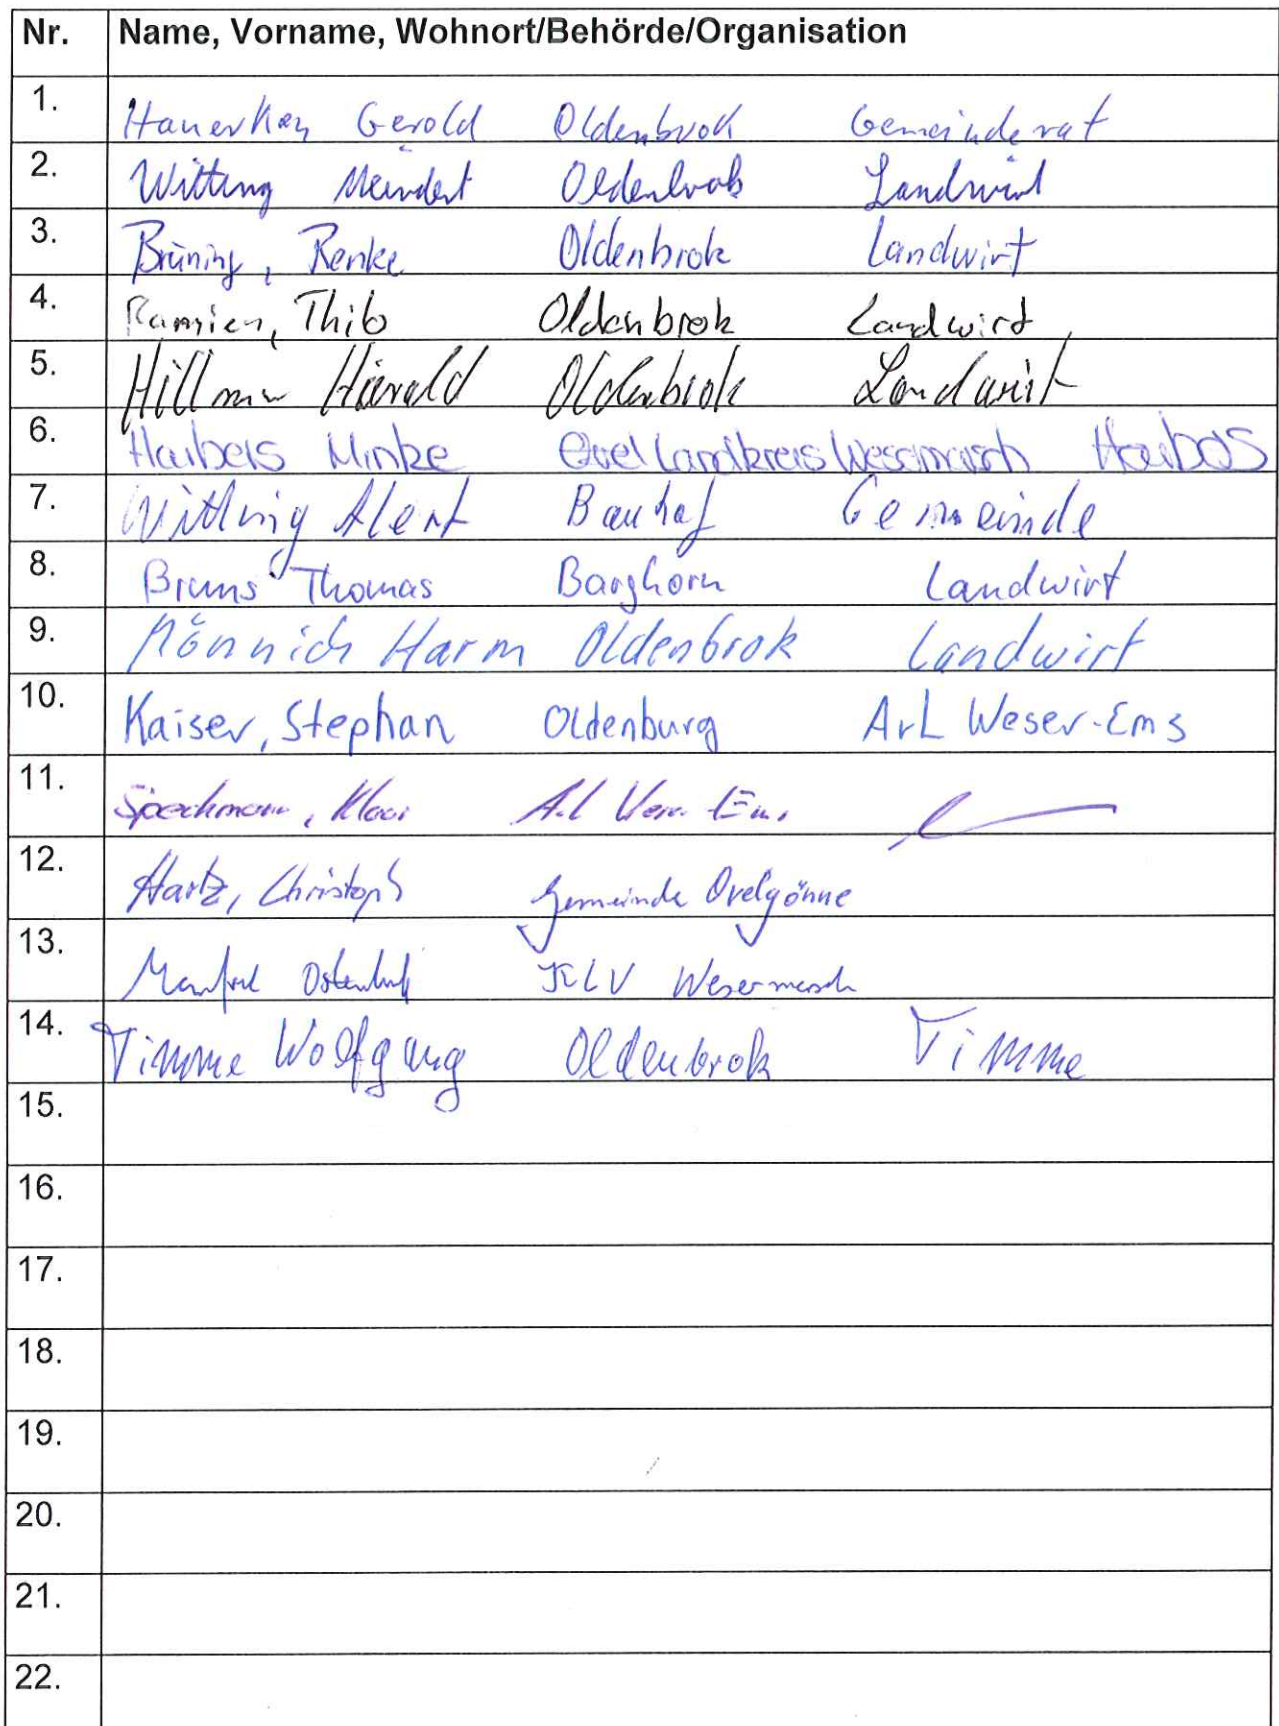 Nr. Name, Vorname, Wohnort/Behörde/Organisation
1. Hanerkan Gerold Oldenbrok Gemeinderat
2. Witting Meindert Oldenbrok Landwirt
3. Brüning, Renke Oldenbrok Landwirt
4. Ramien, Thilo Oldenbrok Landwirt
5. Hillmer Harald Oldenbrok Landwirt
6. Minke Landkreis Wesermarsch
7. Wittling Alert Bauhof Gemeinde
8. Bruns Thomas Barghorn Landwirt
9. Mönnich Harm Oldenbrok Landwirt
10. Kaiser, Stephan Oldenburg ArL Weser-Ems
11. Speckmann, ArL Weser-Ems
12. Hartz, Christoph Gemeinde Ovelgönne
13. Manfred Ostendorf KLV Wesermarsch
14. Timme Wolfgang Oldenbrok Timme
15.
16.
17.
18.
19.
20.
21.
22.